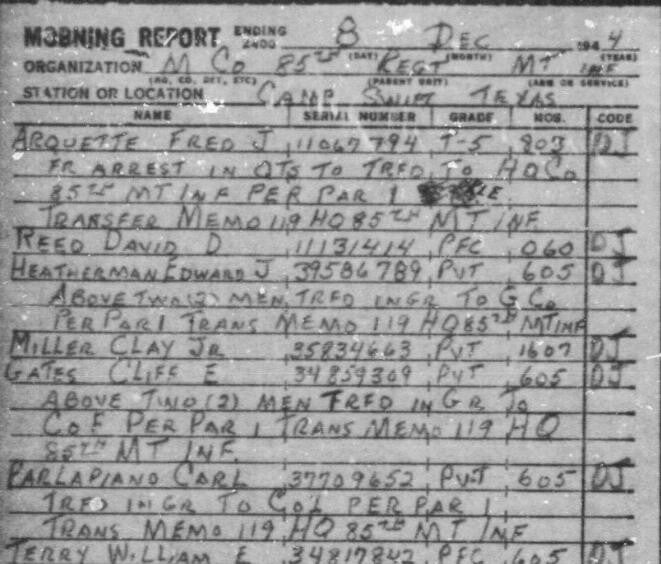 MORNING REPORT ENDING 2400 8 DEC 1944
(DAY) (MONTH) (YEAR)
ORGANIZATION M CO 85TH REGT MT INF
(BG, CO, DET, ETC) (PARENT UNIT) (ARM OR SERVICE)
STATION OR LOCATION CAMP SWIFT TEXAS
NAME SERIAL NUMBER GRADE MOS. CODE
ARQUETTE FRED J 11067794 T-5 803 DJ
FR ARREST IN QTS TO TRFD TO HQ CO
85TH MT INF PER PAR 1
TRANSFER MEMO 119 HQ 85TH MT INF
REED DAVID D 11131414 PFC 060 DJ
HEATHERMAN EDWARD J 39586789 PVT 605 DJ
ABOVE TWO (2) MEN TRFD IN GR TO G CO
PER PAR 1 TRANS MEMO 119 HQ 85TH MT INF
MILLER CLAY JR 35834663 PVT 1607 DJ
GATES CLIFF E 34859309 PVT 605 DJ
ABOVE TWO (2) MEN TRFD IN GR TO
CO F PER PAR 1 TRANS MEMO 119 HQ
85TH MT INF.
PARLAPIANO CARL 37709652 PVT 605 DJ
TRFD IN GR TO CO L PER PAR 1
TRANS MEMO 119 HQ 85TH MT INF
TERRY WILLIAM E 34817842 PFC 605 DJ